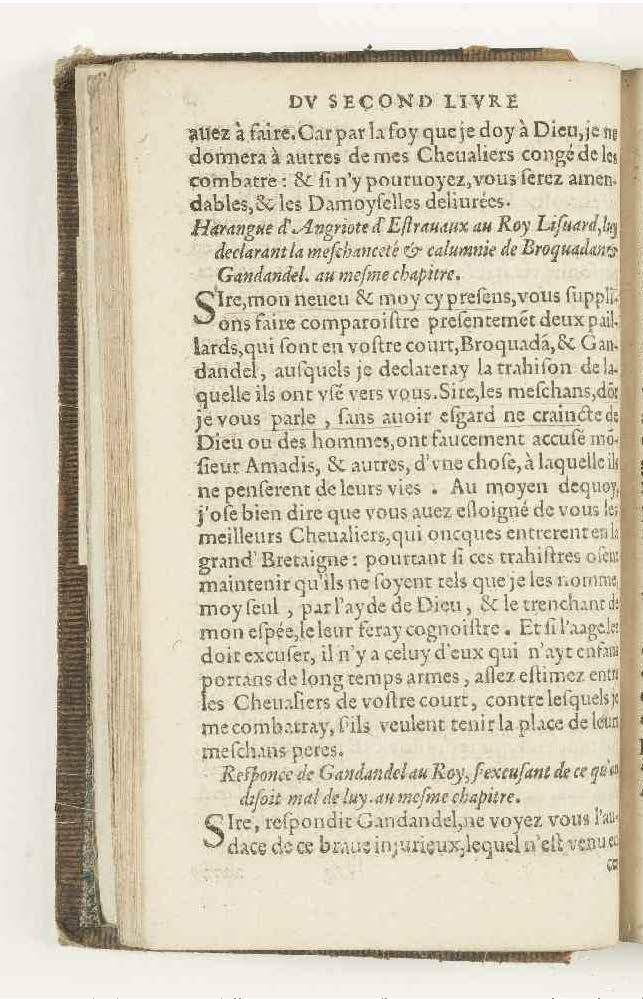 DV SECOND LIVRE
auez à faire. Car par la foy que je doy à Dieu, je ne
donnera à autres de mes Cheualiers congé de les
combatre: & si n'y pouruoyez, vous serez amen-
dables, & les Damoyselles deliurées.
Harangue d'Angriote d'Estrauaux au Roy Lisuard, luy
declarant la meschanceté & calumnie de Broquadan &
Gandandel. au mesme chapitre.
SIre, mon neueu & moy cy presens, vous suppli-
ons faire comparoistre presentemēt deux pail-
lards, qui sont en vostre court, Broquadā, & Gan-
dandel, ausquels je declareray la trahison de la-
quelle ils ont vsé vers vous. Sire, les meschans, dōt
je vous parle, sans auoir esgard ne craincte de
Dieu ou des hommes, ont faucement accusé mō-
sieur Amadis, & autres, d'vne chose, à laquelle ils
ne penserent de leurs vies. Au moyen dequoy,
j'ose bien dire que vous auez esloigné de vous les
meilleurs Cheualiers, qui oncques entrerent en la
grand' Bretaigne: pourtant si ces trahistres osent
maintenir qu'ils ne soyent tels que je les nomme,
moy seul, par l'ayde de Dieu, & le trenchant de
mon espée, le leur feray cognoistre. Et si l'aage les
doit excuser, il n'y a celuy d'eux qui n'ayt enfans
portans de long temps armes, assez estimez entre
les Cheualiers de vostre court, contre lesquels je
me combatray, s'ils veulent tenir la place de leurs
meschans peres.
Responce de Gandandel au Roy, s'excusant de ce qu'on
disoit mal de luy. au mesme chapitre.
SIre, respondit Gandandel, ne voyez vous l'au-
dace de ce braue injurieux, lequel n'est venu en